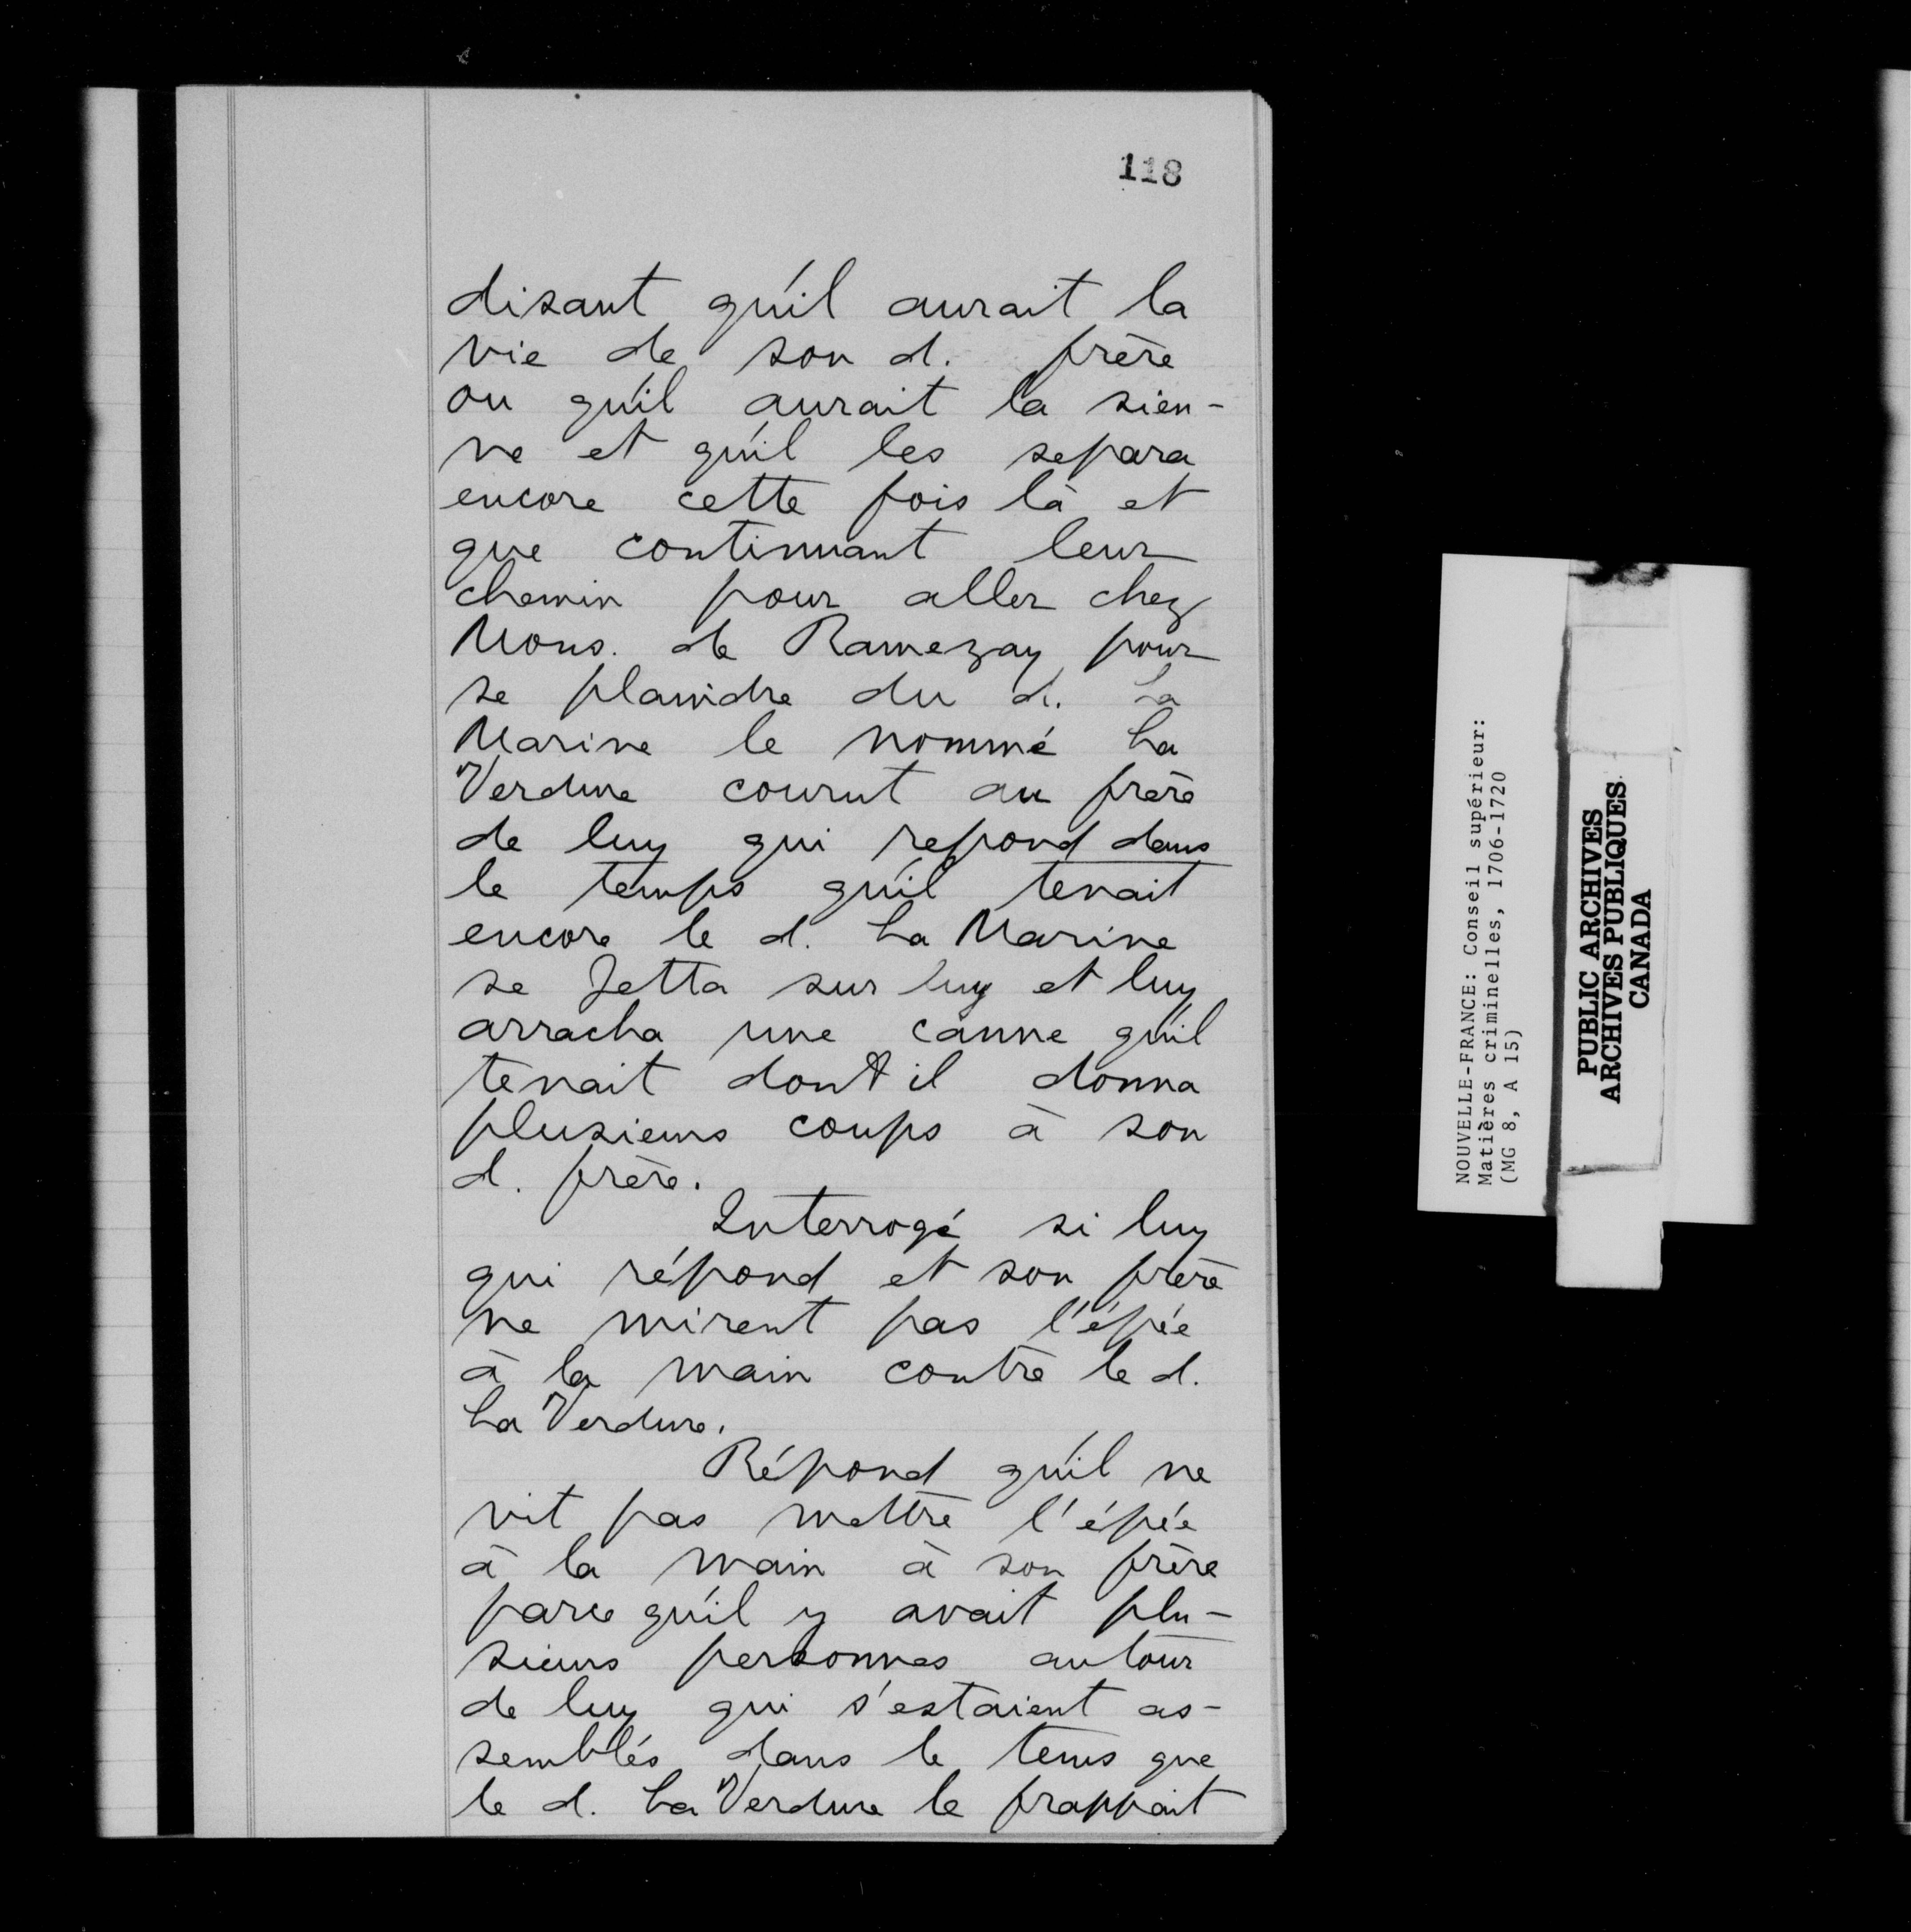 118
disant qu'il aurait la
vie de son d. frère
ou qu'il aurait la sien-
ne et qu'il les separa
encore cette fois là et
que continuant leur
chemin pour aller chez
Mons. de Ramezay pour
se plaindre du d. La
Marine le nommé La
Verdure courut au frère
de luy qui repond dans
le temps qu'il tenait
encore le d. La Marine
se Jetta sur luy et luy
arracha une canne qu'il
tenait dont il donna
plusieurs coups à son
d. frère.
Interrogé si luy
qui répond et son frère
ne mirent pas l'épée
à la main contre le d.
La Verdure.
Répond qu'il ne
vit pas mettre l'épée
à la main à son frère
parce qu'il y avait plu-
sieurs personnes autour
de luy qui s'estaient as-
semblés dans le tems que
le d. La Verdure le frappait
NOUVELLE-FRANCE: Conseil supérieur:
Matières criminelles, 1706-1720
(MG 8, A 15)
PUBLIC ARCHIVES
ARCHIVES PUBLIQUES
CANADA